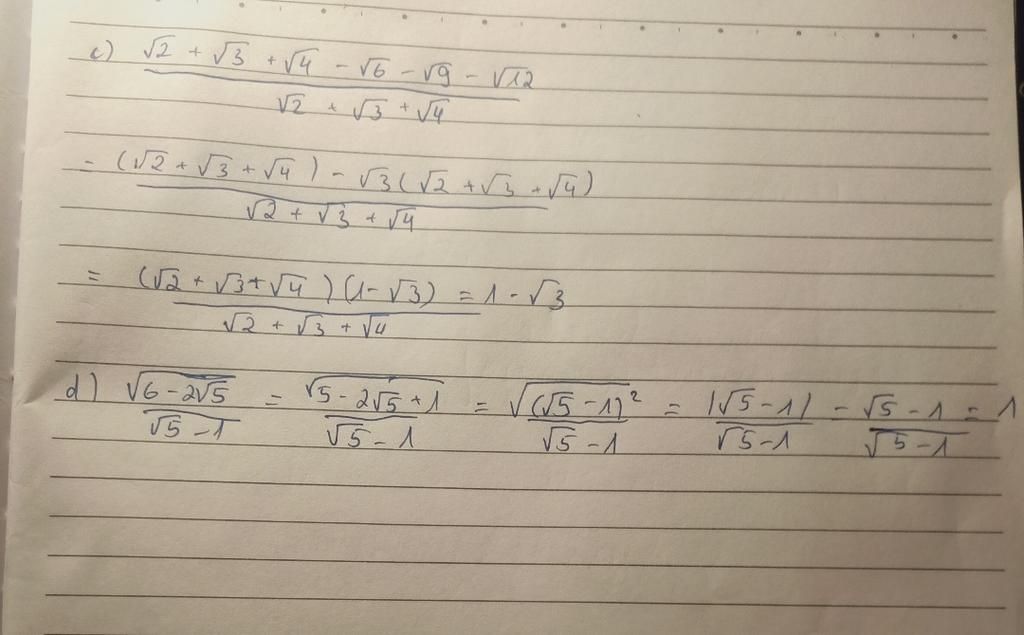 c) √2 + √3 + √4 - √6 - √9 - √12
√2 + √3 + √4
= (√2 + √3 + √4) - √3(√2 + √3 + √4)
√2 + √3 + √4
= (√2 + √3 + √4)(1-√3) = 1 - √3
√2 + √3 + √4
d) √(6-2√5) = √(5-2√5+1) = √(√5-1)² = |√5-1| - √5-1 = 1
√5-1 √5-1 √5-1 √5-1 √5-1